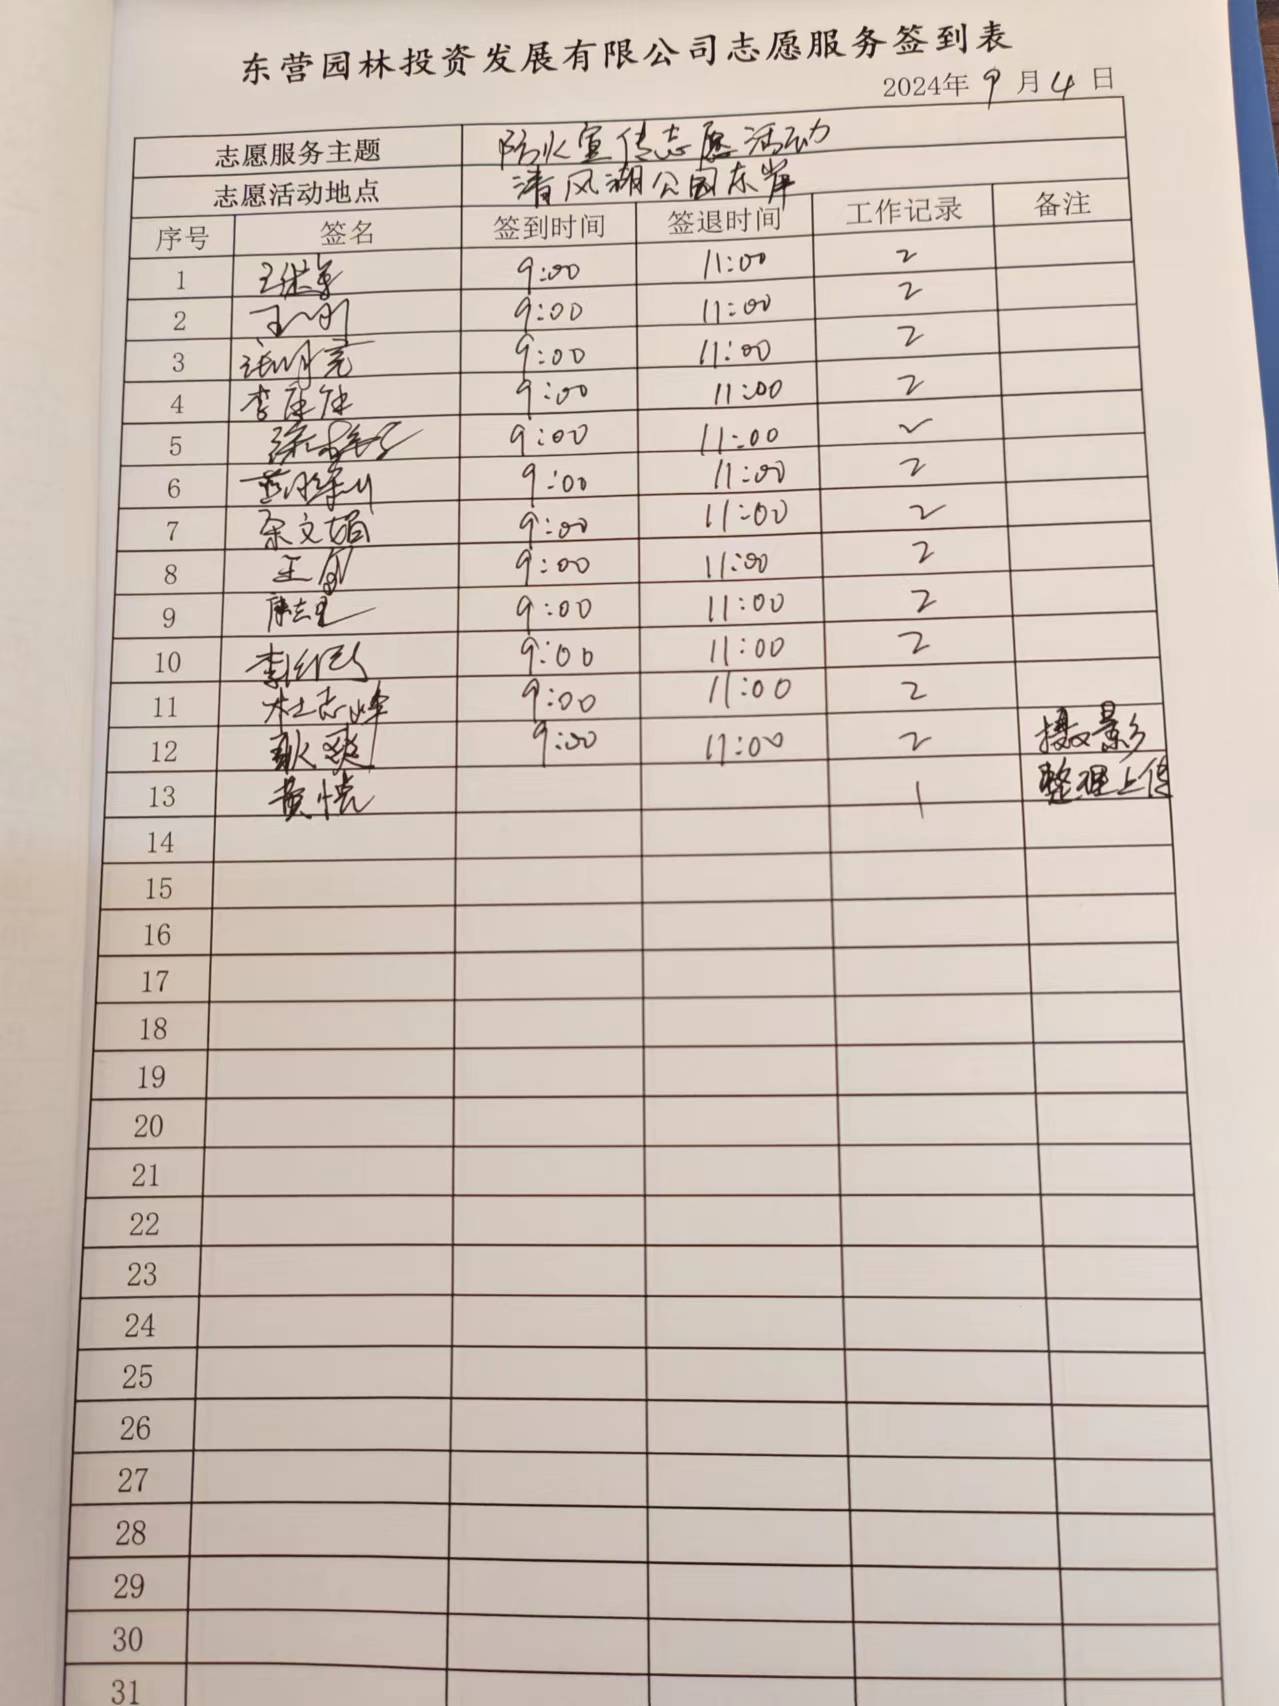 东营园林投资发展有限公司志愿服务签到表
2024年 9 月 4 日
志愿服务主题 防火宣传志愿活动
志愿活动地点 清风湖公园东岸
序号 签名 签到时间 签退时间 工作记录 备注
1 9:00 11:00 2
2 9:00 11:00 2
3 张明亮 9:00 11:00 2
4 李 9:00 11:00 2
5 9:00 11:00 2
6 9:00 11:00 2
7 宋文娟 9:00 11:00 2
8 王 9:00 11:00 2
9 9:00 11:00 2
10 李 9:00 11:00 2
11 杜志峰 9:00 11:00 2
12 耿爽 9:00 11:00 2 摄影
13 黄 1 整理上传
14
15
16
17
18
19
20
21
22
23
24
25
26
27
28
29
30
31